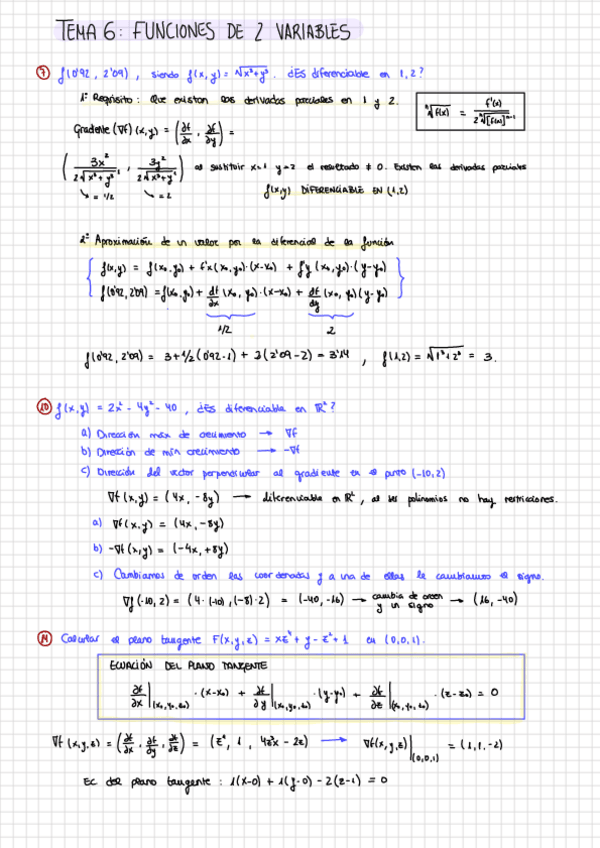 TEMA 6: FUNCIONES DE 2 VARIABLES
7 f(0'92, 2'09), siendo f(x,y) = √x³+y³. ¿Es diferenciable en 1,2?
1º Requisito: Que existan las derivadas parciales en 1 y 2.
ⁿ√f(x) = f'(x) / n ⁿ√[f(x)]ⁿ⁻¹
Gradiente (∇f)(x,y) = (∂f/∂x, ∂f/∂y) =
(3x²/2√x³+y³, 3y²/2√x³+y³) al sustituir x=1 y=2 el resultado ≠ 0. Existen las derivadas parciales
↳ = 1/2 ↳ = 2 f(x,y) DIFERENCIABLE EN (1,2)
2º Aproximación de un valor por la diferencial de la función
f(x,y) = f(x₀,y₀) + f'x(x₀,y₀)·(x-x₀) + f'y(x₀,y₀)·(y-y₀)
f(0'92, 2'09) = f(x₀,y₀) + df/dx (x₀,y₀)·(x-x₀) + df/dy (x₀,y₀)(y-y₀)
1/2 2
f(0'92, 2'09) = 3 + 1/2(0'92-1) + 2(2'09-2) = 3'14 , f(1,2) = √1³+2³ = 3.
10 f(x,y) = 2x² - 4y² - 40, ¿Es diferenciable en ℝ²?
a) Dirección máx de crecimiento → ∇f
b) Dirección de mín crecimiento → -∇f
c) Dirección del vector perpendicular al gradiente en el punto (-10,2)
∇f(x,y) = (4x, -8y) → diferenciable en ℝ², al ser polinomios no hay restricciones.
a) ∇f(x,y) = (4x, -8y)
b) -∇f(x,y) = (-4x, +8y)
c) Cambiamos de orden las coordenadas y a una de ellas le cambiamos el signo.
∇f(-10,2) = (4·(-10), (-8)·2) = (-40, -16) → cambia de orden y un signo → (16, -40)
Calcular el plano tangente F(x,y,z) = xz⁴ + y - z² + 1 en (0,0,1).
ECUACIÓN DEL PLANO TANGENTE
∂f/∂x|(x₀,y₀,z₀) · (x-x₀) + ∂f/∂y|(x₀,y₀,z₀) · (y-y₀) + ∂f/∂z|(x₀,y₀,z₀) · (z-z₀) = 0
∇f(x,y,z) = (∂f/∂x, ∂f/∂y, ∂f/∂z) = (z⁴, 1, 4z³x - 2z) → ∇f(x,y,z)|(0,0,1) = (1,1,-2)
EC del plano tangente: 1(x-0) + 1(y-0) - 2(z-1) = 0